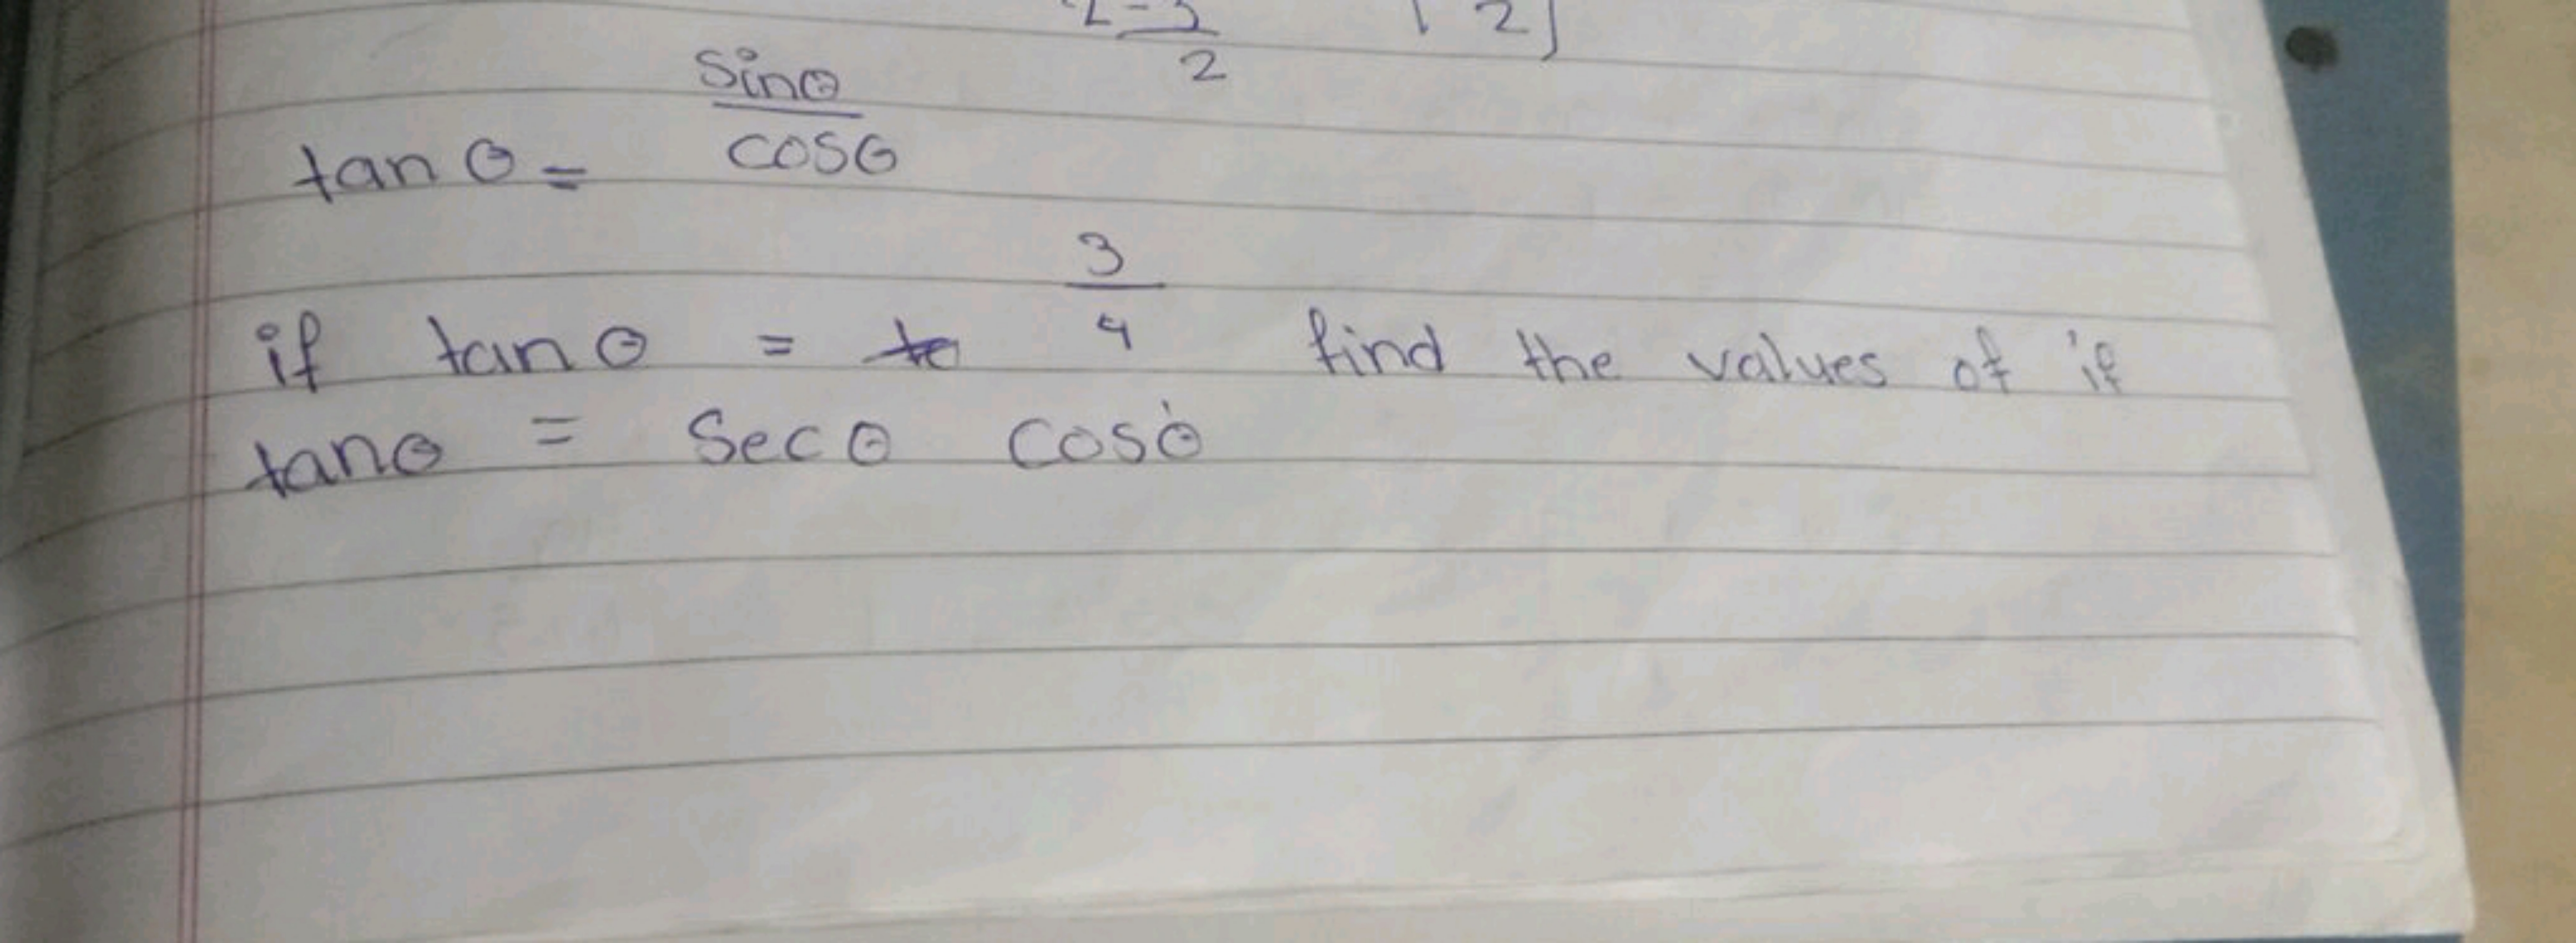 2-3 / 2 2]
tan θ = sinθ / cosθ
if tan θ = 3/4 find the values of if
tanθ = Sec θ cosθ